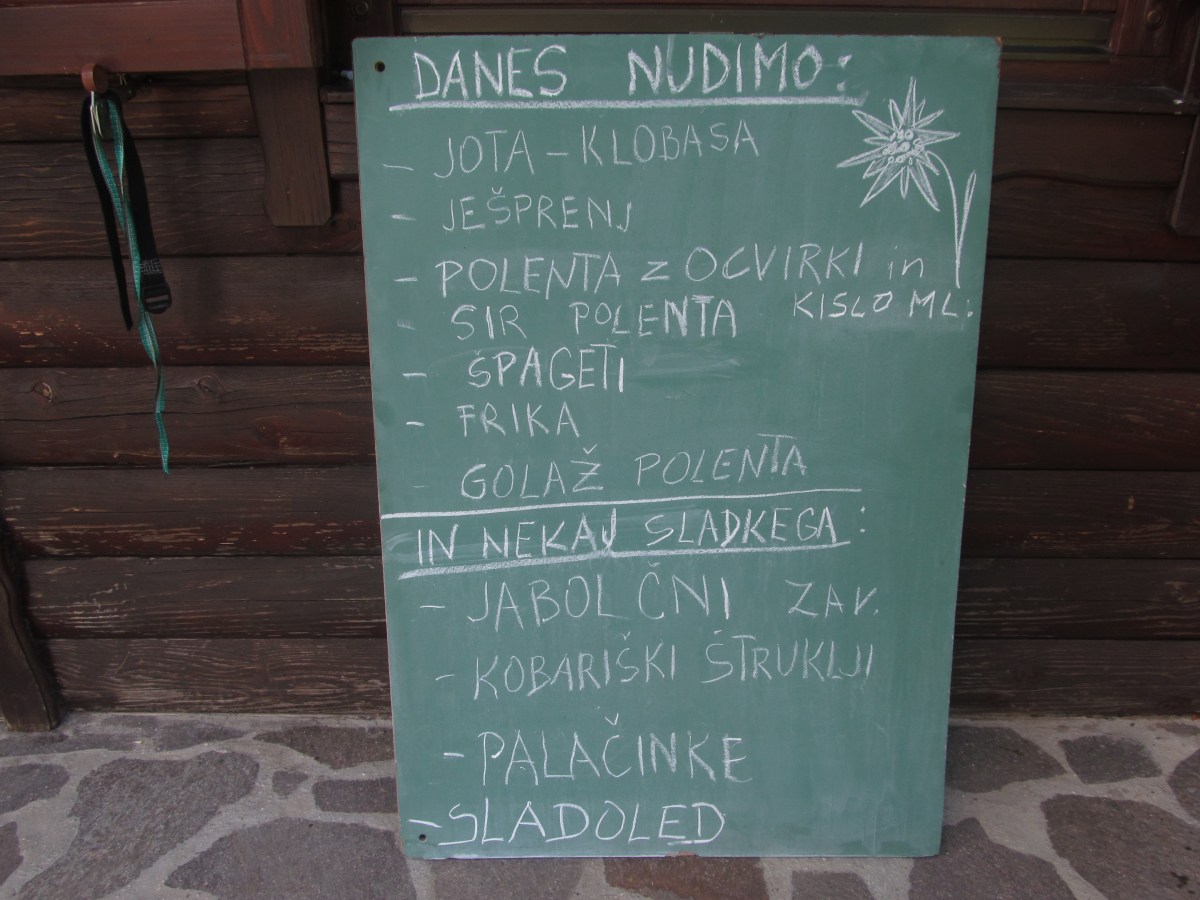 DANES NUDIMO:
- JOTA - KLOBASA
- JEŠPRENJ
- POLENTA z OCVIRKI in
KISLO ML:
- SIR POLENTA
- ŠPAGETI
- FRIKA
- GOLAŽ POLENTA
IN NEKAJ SLADKEGA:
- JABOLČNI ZAV.
- KOBARIŠKI ŠTRUKLJI
- PALAČINKE
- SLADOLED